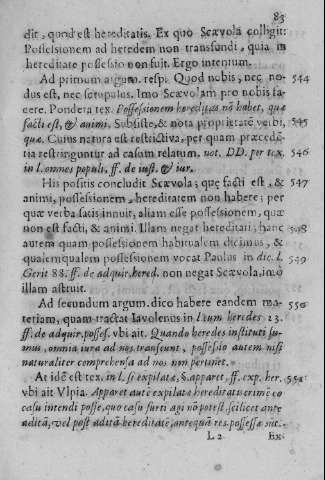 83
dit, quod est hereditatis. Ex quo Scævola colligit:
Possessionem ad heredem non transfundi, quia in
hereditate possessio non fuit. Ergo intentum.
Ad primum argum. resp. Quod nobis, nec no- 544
dus est, nec scrupulus. Imo Scævolam pro nobis fa-
cere. Pondera tex. Possessionem hereditas nō habet, quæ
facti est, & animi. Subsiste, & nota proprietatē verbi, 545
quæ. Cuius natura est restrictiva, per quam præcedē-
tia restringuntur ad casum relatum, not. DD. per tex. 546
in l. omnes populi, ff. de iust. & iur.
His positis concludit Scævola; quæ facti est, & 547
animi, possessionem, hereditatem non habere; per
quæ verba satis innuit, aliam esse possessionem, quæ
non est facti, & animi. Illam negat hereditati, hanc 548
autem quam possessionem habitualem dicimus, &
qualemqualem possessionem vocat Paulus in dic. l. 549
Gerit 88. ff. de adquir. hered. non negat Scævola, imò
illam astruit.
Ad secundum argum. dico habere eandem ma- 550
teriam, quam tractat Iavolenus in l. cum heredes 23.
ff. de adquir. posses. vbi ait. Quando heredes instituti su-
mus, omnia iura ad nos transeunt, possessio autem nisi
naturaliter comprehensa ad nos non pertinet.
At idē est tex. in l. si expilatæ, §. apparet, ff. exp. her. 551
vbi ait Vlpia. Apparet autē expilatæ hereditatis crimē eo
casu intendi posse, quo casu furti agi nō potest, scilicet ante
aditā, vel post aditā hereditatē, antequā res possessæ sint.
L 2 Ex-